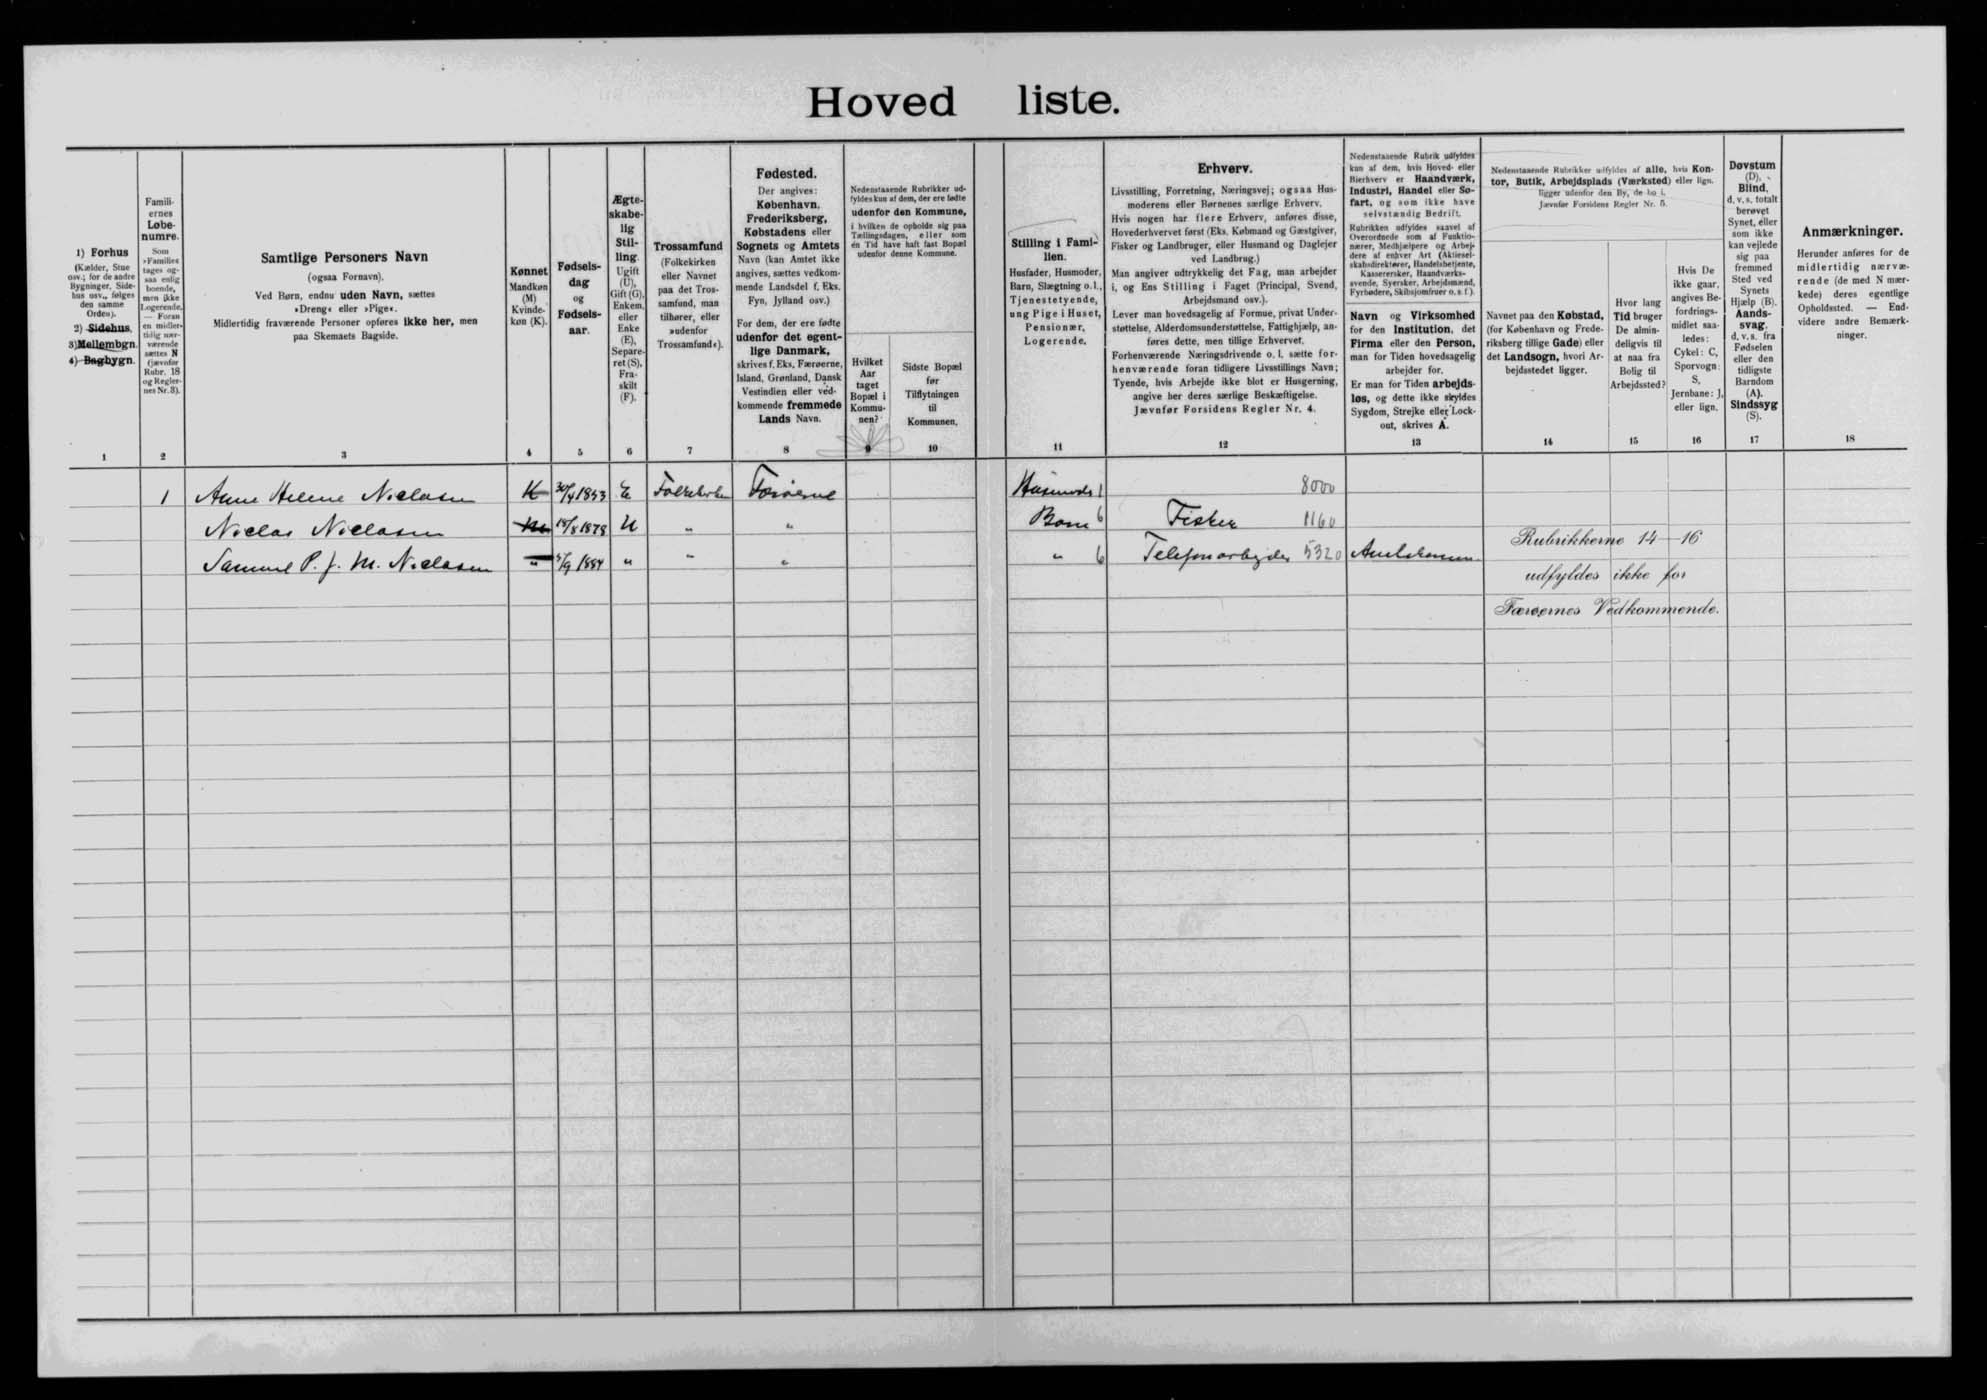 Hoved liste.
1) Forhus
(Kælder, Stue
osv.; for de andre
Bygninger, Side-
hus osv., følges
den samme
Orden).
2) Sidehus.
3) Mellembgn.
4) Bagbygn.
Famili-
ernes
Løbe-
numre.
Som
»Familie«
tages og-
saa enlig
boende,
men ikke
Logerende.
— Foran
en midler-
tidig nær-
værende
sættes N
(jævnfør
Rubr. 18
og Regler-
nes Nr. 3).
Samtlige Personers Navn
(ogsaa Fornavn).
Ved Børn, endnu uden Navn, sættes
»Dreng« eller »Pige«.
Midlertidig fraværende Personer opføres ikke her, men
paa Skemaets Bagside.
Kønnet
Mandkøn
(M)
Kvinde-
køn (K).
Fødsels-
dag
og
Fødsels-
aar.
Ægte-
skabe-
lig
Stil-
ling.
Ugift
(U),
Gift (G),
Enkem.
eller
Enke
(E),
Separe-
ret (S),
Fra-
skilt
(F).
Trossamfund
(Folkekirken
eller Navnet
paa det Tros-
samfund, man
tilhører, eller
»udenfor
Trossamfund«).
Fødested.
Der angives:
København,
Frederiksberg,
Købstadens eller
Sognets og Amtets
Navn (kan Amtet ikke
angives, sættes vedkom-
mende Landsdel f. Eks.
Fyn, Jylland osv.)
For dem, der ere fødte
udenfor det egent-
lige Danmark,
skrives f. Eks. Færøerne,
Island, Grønland, Dansk
Vestindien eller ved-
kommende fremmede
Lands Navn.
Nedenstaaende Rubrikker ud-
fyldes kun af dem, der ere fødte
udenfor den Kommune,
i hvilken de opholde sig paa
Tællingsdagen, eller som
én Tid have haft fast Bopæl
udenfor denne Kommune.
Hvilket
Aar
taget
Bopæl i
Kommu-
nen?
Sidste Bopæl
før
Tilflytningen
til
Kommunen.
Stilling i Fami-
lien.
Husfader, Husmoder,
Barn, Slægtning o. l.,
Tjenestetyende,
ung Pige i Huset,
Pensionær,
Logerende.
Erhverv.
Livsstilling, Forretning, Næringsvej; ogsaa Hus-
moderens eller Børnenes særlige Erhverv.
Hvis nogen har flere Erhverv, anføres disse,
Hovederhvervet først (Eks. Købmand og Gæstgiver,
Fisker og Landbruger, eller Husmand og Daglejer
ved Landbrug.)
Man angiver udtrykkelig det Fag, man arbejder
i, og Ens Stilling i Faget (Principal, Svend,
Arbejdsmand osv.).
Lever man hovedsagelig af Formue, privat Under-
støttelse, Alderdomsunderstøttelse, Fattighjælp, an-
føres dette, men tillige Erhvervet.
Forhenværende Næringsdrivende o. l. sætte for-
henværende foran tidligere Livsstillings Navn;
Tyende, hvis Arbejde ikke blot er Husgerning,
angive her deres særlige Beskæftigelse.
Jævnfør Forsidens Regler Nr. 4.
Nedenstaaende Rubrik udfyldes
kun af dem, hvis Hoved- eller
Bierhverv er Haandværk,
Industri, Handel eller Sø-
fart, og som ikke have
selvstændig Bedrift.
Rubrikken udfyldes saavel af
Overordnede som af Funktio-
nærer, Medhjælpere og Arbej-
dere af enhver Art (Aktiesel-
skabsdirektører, Handelsbetjente,
Kasserersker, Haandværks-
svende, Syersker, Arbejdsmænd,
Fyrbødere, Skibsjomfruer o. s. f.).
Navn og Virksomhed
for den Institution, det
Firma eller den Person,
man for Tiden hovedsagelig
arbejder for.
Er man for Tiden arbejds-
løs, og dette ikke skyldes
Sygdom, Strejke eller Lock-
out, skrives A.
Nedenstaaende Rubrikker udfyldes af alle, hvis Kon-
tor, Butik, Arbejdsplads (Værksted) eller lign.
ligger udenfor den By, de bo i.
Jævnfør Forsidens Regler Nr. 5.
Navnet paa den Købstad,
(for København og Frede-
riksberg tillige Gade) eller
det Landsogn, hvori Ar-
bejdsstedet ligger.
Hvor lang
Tid bruger
De almin-
deligvis til
at naa fra
Bolig til
Arbejdssted?
Hvis De
ikke gaar,
angives Be-
fordrings-
midlet saa-
ledes:
Cykel: C,
Sporvogn:
S,
Jernbane: J,
eller lign.
Døvstum
(D).
Blind,
d. v. s. totalt
berøvet
Synet, eller
som ikke
kan vejlede
sig paa
fremmed
Sted ved
Synets
Hjælp (B).
Aands-
svag,
d. v. s. fra
Fødselen
eller den
tidligste
Barndom
(A).
Sindssyg
(S).
Anmærkninger.
Herunder anføres for de
midlertidig nærvæ-
rende (de med N mær-
kede) deres egentlige
Opholdssted. — End-
videre andre Bemærk-
ninger.
1 2 3 4 5 6 7 8 9 10 11 12 13 14 15 16 17 18
1 Anne Helene Niclasen K 30/4 1853 E Folkekirken Færøerne Husmoder 1 8000
Niclas Niclasen M 18/8 1878 U " " Barn 6 Fisker 1160
Samuel P. J. M. Niclasen " 5/9 1884 " " " " 6 Telefonarbejder 5320
Rubrikkerne 14—16
udfyldes ikke for
Færøernes Vedkommende.